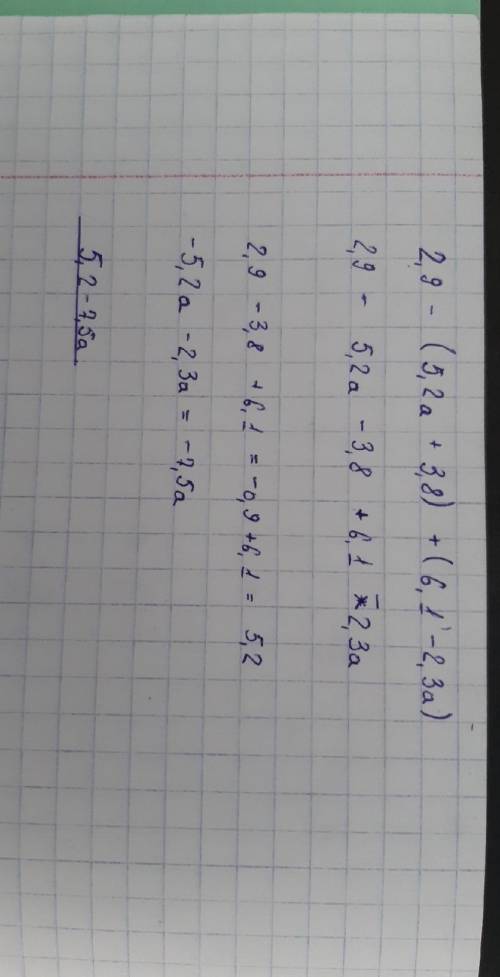 2,9 - (5,2a + 3,8) + (6,1 - 2,3a)
2,9 - 5,2a - 3,8 + 6,1 - 2,3a
2,9 - 3,8 + 6,1 = -0,9 + 6,1 = 5,2
-5,2a - 2,3a = -7,5a
5,2 - 7,5a